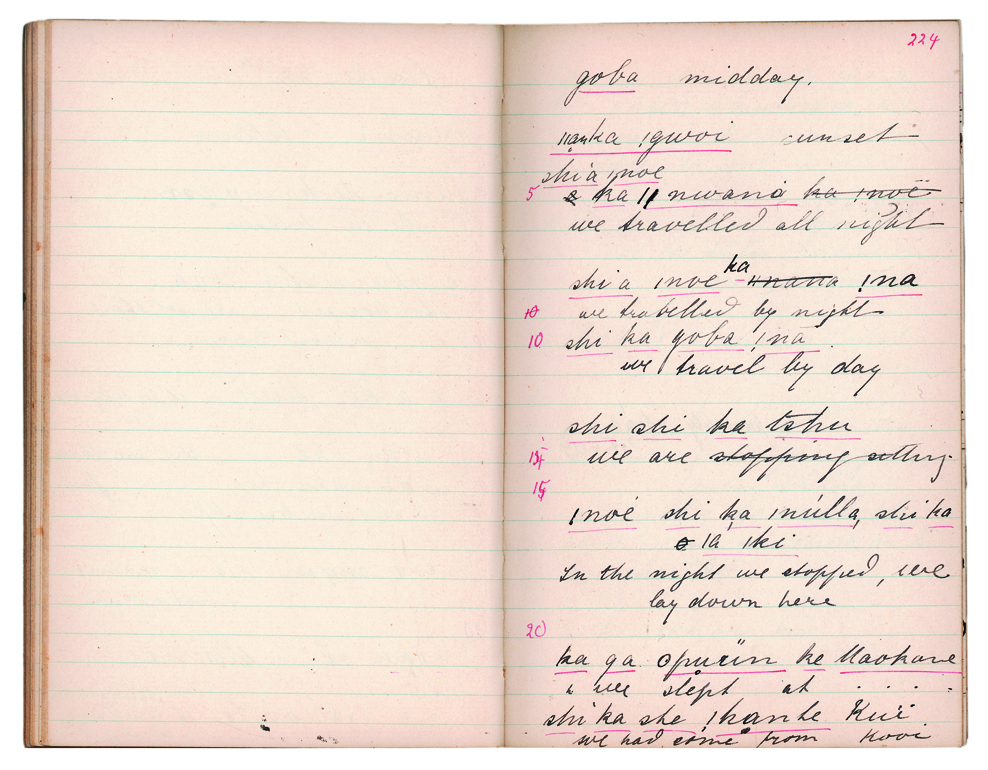 224
goba midday.
ǁaṇka ǀgwoi sunset
shi a ǀnoe
5 ka ǁ nwana ka ǀnoë
we travelled all night
shi a ǀnoe ka ǁnana ǃna
10 we travelled by night
10 shi ka goba ǀna
we travel by day
shi shi ka tshu
we are stopping sitting
15
ǀnoé shi ka ǀnúlla, shi ka
ǀa ǀki
In the night we stopped, we
lay down here
20
ka ga opurün ke Maokare
we slept at . . . .
shi ka she ǀkanke Kuï
we had come from Kooi